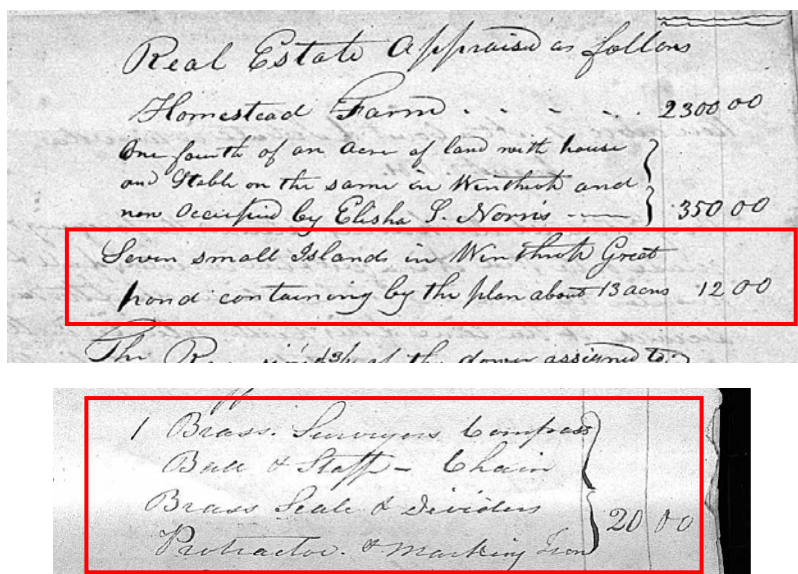 Real Estate Appraisd as follows
Homestead Farm - - - - 2300 00
One fourth of an acre of land with house
and Stable on the same in Winthrop and
now occupied by Elisha S. Norris — 350 00
Seven small Islands in Winthrop Great
pond containing by the plan about 13 acres 12 00
of the dower assigned to
1 Brass Surveyors Compass
Ball & Staff - Chain
Brass Scale & dividers
Protractor & Marking Iron 20 00